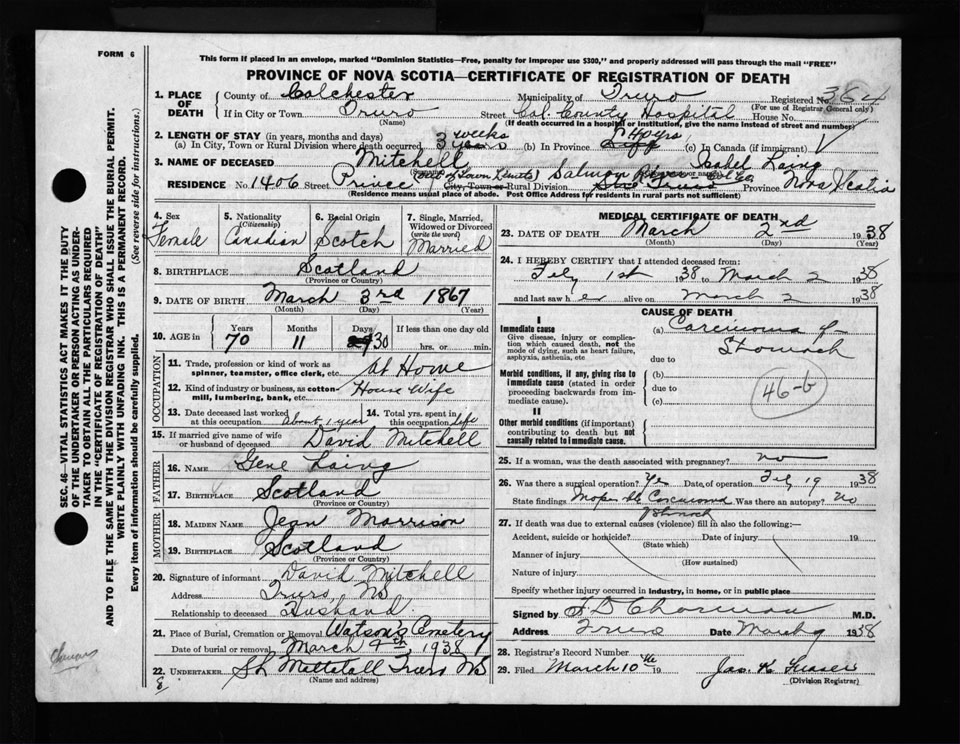 FORM 6
This form if placed in an envelope, marked "Dominion Statistics—Free, penalty for improper use $300," and properly addressed will pass through the mail "FREE"
PROVINCE OF NOVA SCOTIA—CERTIFICATE OF REGISTRATION OF DEATH
1. PLACE OF DEATH County of Colchester Municipality of Truro Registered No. 384
(For use of Registrar General only)
If in City or Town Truro Street Col. County Hospital House No.
(Name) (If death occurred in a hospital or institution, give the name instead of street and number)
2. LENGTH OF STAY (in years, months and days)
(a) In City, Town or Rural Division where death occurred 3 weeks (b) In Province (c) In Canada (if immigrant)
3. NAME OF DECEASED Mitchell Isabel Laing
RESIDENCE No. 1406 Street Prince (out of Town Limits) City, Town or Rural Division Salmon River Col Co. Province Nova Scotia
(Residence means usual place of abode. Post Office Address for residents in rural parts not sufficient)
4. Sex Female
5. Nationality (Citizenship) Canadian
6. Racial Origin Scotch
7. Single, Married, Widowed or Divorced (write the word) Married
8. BIRTHPLACE Scotland
(Province or Country)
9. DATE OF BIRTH March 3rd 1867
(Month) (Day) (Year)
10. AGE in Years 70 Months 11 Days 30 If less than one day old hrs. or min.
OCCUPATION
11. Trade, profession or kind of work as spinner, teamster, office clerk, etc. At Home
12. Kind of industry or business, as cotton-mill, lumbering, bank, etc. House Wife
13. Date deceased last worked at this occupation About 1 year
14. Total yrs. spent in this occupation Life
15. If married give name of wife or husband of deceased David Mitchell
FATHER
16. NAME Gene Laing
17. BIRTHPLACE Scotland
(Province or Country)
MOTHER
18. MAIDEN NAME Jean Morrison
19. BIRTHPLACE Scotland
(Province or Country)
20. Signature of informant David Mitchell
Address Truro, NS
Relationship to deceased Husband.
21. Place of Burial, Cremation or Removal Watson's Cemetery
Date of burial or removal March 4th, 1938
22. UNDERTAKER Mattatall Truro NS
(Name and address)
MEDICAL CERTIFICATE OF DEATH
23. DATE OF DEATH March 2nd 1938
(Month) (Day) (Year)
24. I HEREBY CERTIFY that I attended deceased from:
1st 1938 to March 2 1938
and last saw her alive on March 2 1938
CAUSE OF DEATH
I
Immediate cause (a) Carcinoma of
Give disease, injury or complication which caused death, not the mode of dying, such as heart failure, asphyxia, asthenia, etc Stomach
due to
Morbid conditions, if any, giving rise to immediate cause (stated in order proceeding backwards from immediate cause). (b)
due to
(c)
46-b
II
Other morbid conditions (if important) contributing to death but not causally related to immediate cause.
25. If a woman, was the death associated with pregnancy? no
26. Was there a surgical operation? Yes Date of operation 19 1938
State findings Inoperable Carcinoma Stomach Was there an autopsy? No
27. If death was due to external causes (violence) fill in also the following:—
Accident, suicide or homicide? Date of injury 19
(State which)
Manner of injury
(How sustained)
Nature of injury
Specify whether injury occurred in industry, in home, or in public place
Signed by M.D.
Address Truro Date March 9 1938
28. Registrar's Record Number
29. Filed March 10th 19 Jas. K. Fraser
(Division Registrar)
SEC. 46—VITAL STATISTICS ACT MAKES IT THE DUTY
OF THE UNDERTAKER OR PERSON ACTING AS UNDER-
TAKER TO OBTAIN ALL THE PARTICULARS REQUIRED
IN THE "CERTIFICATE OF REGISTRATION OF DEATH"
AND TO FILE THE SAME WITH THE DIVISION REGISTRAR WHO SHALL ISSUE THE BURIAL PERMIT.
WRITE PLAINLY WITH UNFADING INK. THIS IS A PERMANENT RECORD.
Every item of information should be carefully supplied. (See reverse side for instructions.)